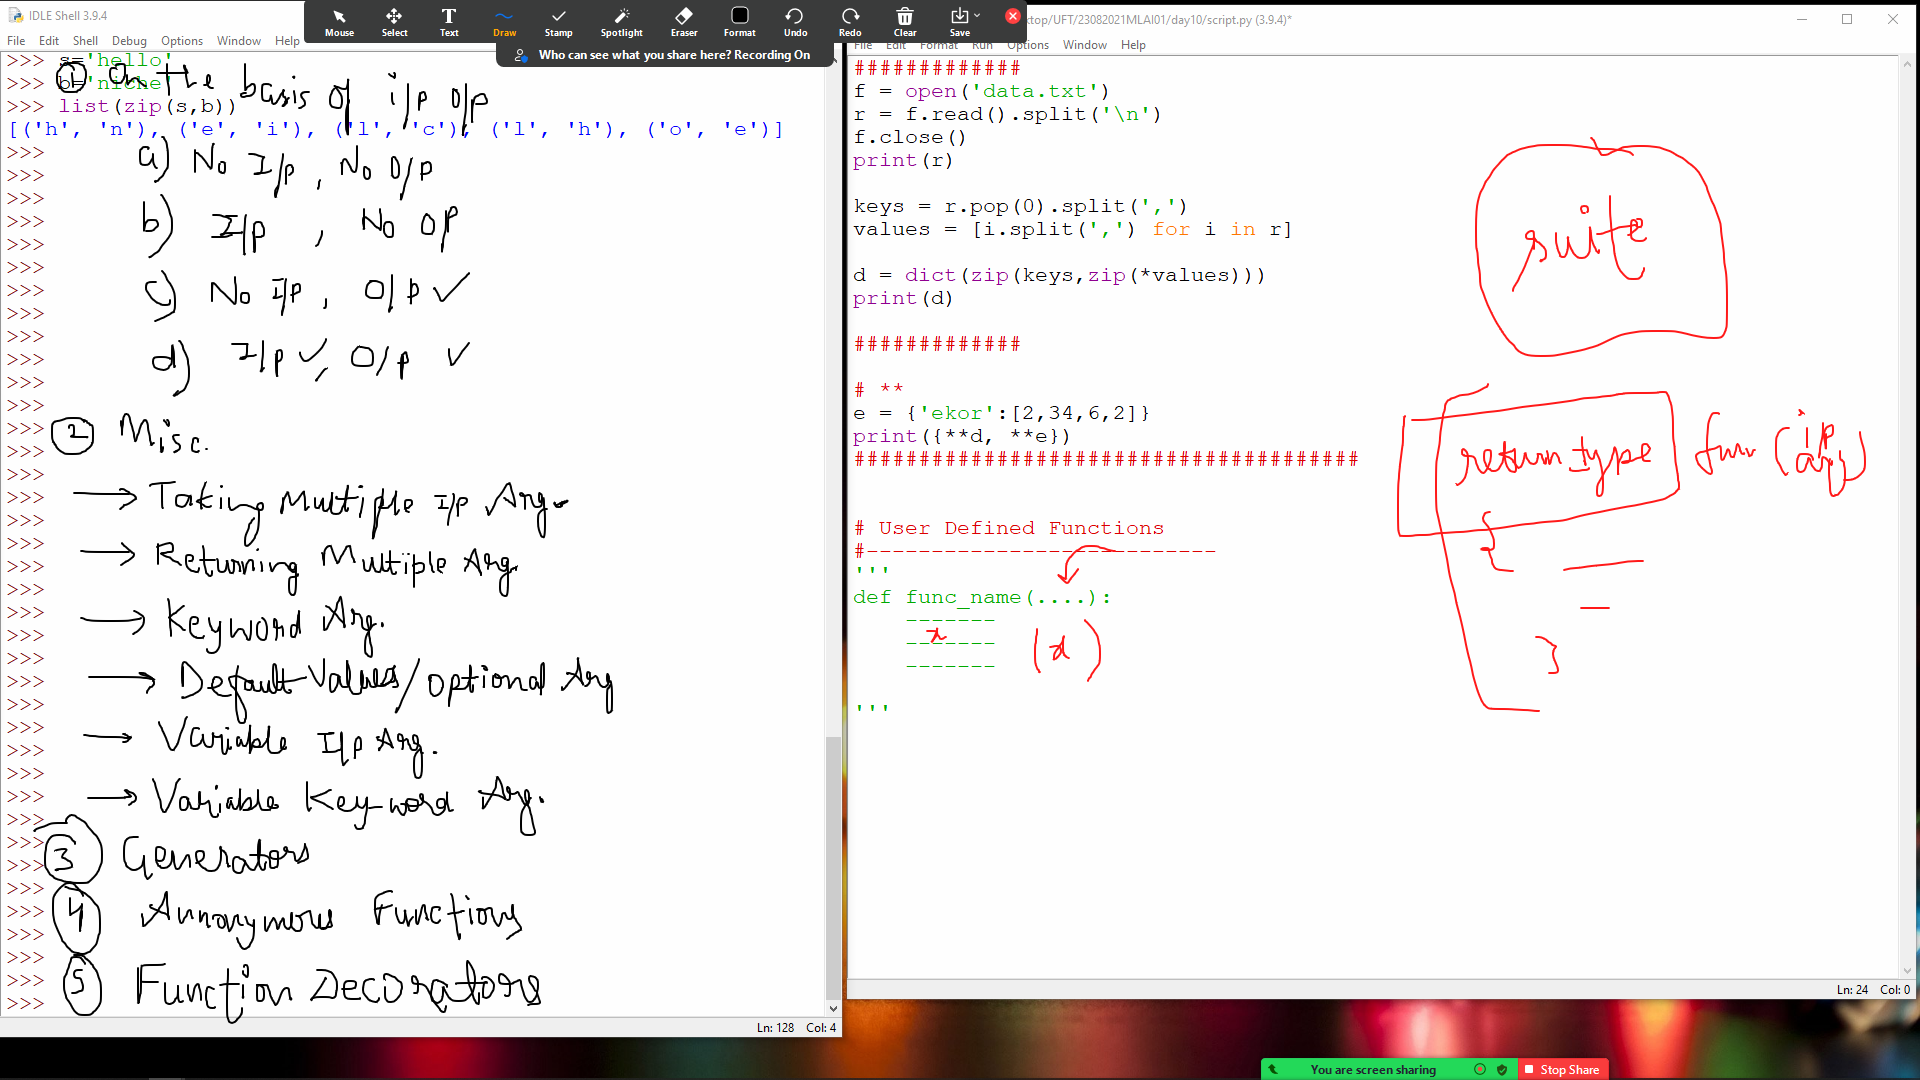 IDLE Shell 3.9.4
File Edit Shell Debug Options Window Help
Mouse Select Text Draw Stamp Spotlight Eraser Format Undo Redo Clear Save
Who can see what you share here? Recording On
>>> s='hello'
>>> b='niche'
>>> list(zip(s,b))
[('h', 'n'), ('e', 'i'), ('l', 'c'), ('l', 'h'), ('o', 'e')]
>>>
① On the basis of i/p o/p
a) No I/p , No O/p
b) I/p , No O/P
c) No I/P , O/P ✓
d) I/p ✓, O/p ✓
② Misc.
→ Taking Multiple I/p Arg.
→ Returning Multiple Arg.
→ Keyword Arg.
→ Default Values/optional Arg
→ Variable I/p Arg.
→ Variable Key-word Arg.
③ Generators
④ Annonymous Functions
⑤ Function Decorators
Ln: 128 Col: 4
ktop/UFT/23082021MLAI01/day10/script.py (3.9.4)*
File Edit Format Run Options Window Help
#############
f = open('data.txt')
r = f.read().split('\n')
f.close()
print(r)
keys = r.pop(0).split(',')
values = [i.split(',') for i in r]
d = dict(zip(keys,zip(*values)))
print(d)
#############
# **
e = {'ekor':[2,34,6,2]}
print({**d, **e})
#######################################
# User Defined Functions
#---------------------------
'''
def func_name(....):
-------
-------
-------
'''
x
(d)
suite
return type func (i/p arg)
{
}
Ln: 24 Col: 0
You are screen sharing
Stop Share